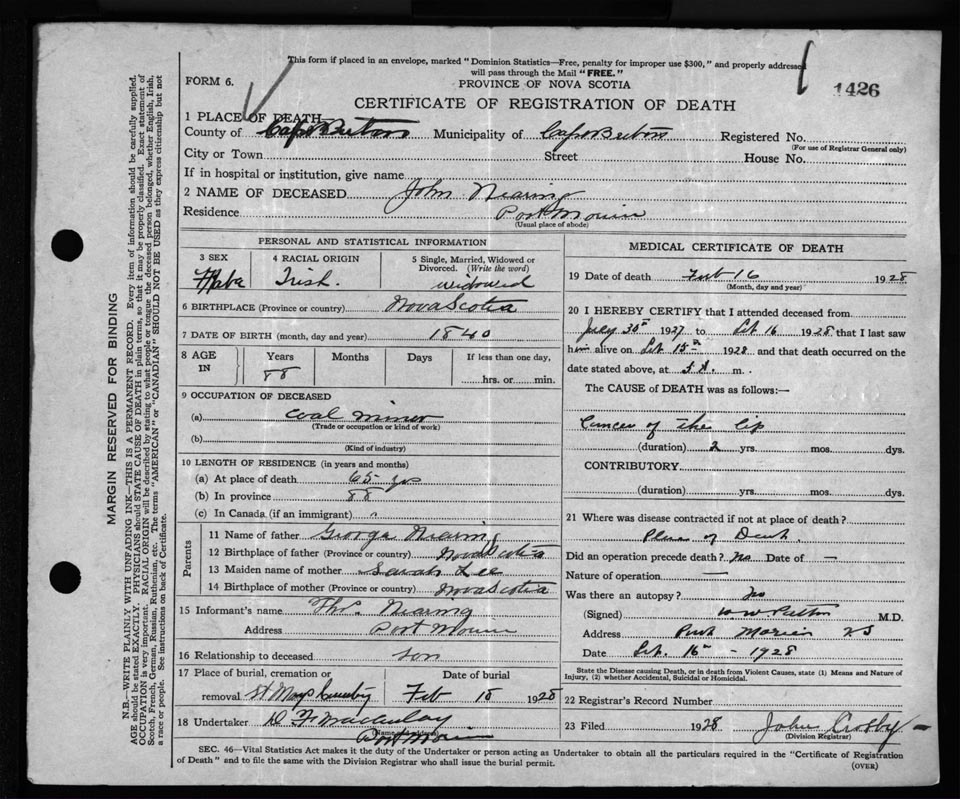 This form if placed in an envelope, marked "Dominion Statistics—Free, penalty for improper use $300," and properly addressed
will pass through the Mail "FREE."
FORM 6.
PROVINCE OF NOVA SCOTIA
1426
CERTIFICATE OF REGISTRATION OF DEATH
1 PLACE OF DEATH
County of Cape Breton Municipality of Cape Breton Registered No.
(For use of Registrar General only)
City or Town Street House No.
If in hospital or institution, give name
2 NAME OF DECEASED John Nearing
Residence Port Morien
(Usual place of abode)
PERSONAL AND STATISTICAL INFORMATION
3 SEX 4 RACIAL ORIGIN 5 Single, Married, Widowed or
Divorced. (Write the word)
Male Irish. widowed
6 BIRTHPLACE (Province or country) Nova Scotia
7 DATE OF BIRTH (month, day and year) 1840
8 AGE IN Years Months Days If less than one day,
88 hrs. or min.
9 OCCUPATION OF DECEASED
(a) Coal miner
(Trade or occupation or kind of work)
(b)
(Kind of industry)
10 LENGTH OF RESIDENCE (in years and months)
(a) At place of death 65 yrs
(b) In province 88
(c) In Canada (if an immigrant)
Parents
11 Name of father George Nearing
12 Birthplace of father (Province or country) Nova Scotia
13 Maiden name of mother Sarah Lee
14 Birthplace of mother (Province or country) Nova Scotia
15 Informant's name Thos. Nearing
Address Port Morien
16 Relationship to deceased son
17 Place of burial, cremation or Date of burial
removal St Marys Cemetery Feb 18 1928
18 Undertaker D F Macaulay
Port Morien
MEDICAL CERTIFICATE OF DEATH
19 Date of death Feb 16 1928
(Month, day and year)
20 I HEREBY CERTIFY that I attended deceased from
July 30th 1927 to Feb 16 1928 that I last saw
him alive on Feb 15th 1928 and that death occurred on the
date stated above, at m.
The CAUSE OF DEATH was as follows:—
Cancer of the Lip
(duration) 2 yrs. mos. dys.
CONTRIBUTORY
(duration) yrs. mos. dys.
21 Where was disease contracted if not at place of death?
Place of Death
Did an operation precede death? No Date of —
Nature of operation —
Was there an autopsy? No
(Signed) M.D.
Address Port Morien NS
Date Feb. 16th - 1928
State the Disease causing Death, or in death from Violent Causes, state (1) Means and Nature of
Injury, (2) whether Accidental, Suicidal or Homicidal.
22 Registrar's Record Number
23 Filed 1928 John Crosby
(Division Registrar)
SEC. 46—Vital Statistics Act makes it the duty of the Undertaker or person acting as Undertaker to obtain all the particulars required in the "Certificate of Registration
of Death" and to file the same with the Division Registrar who shall issue the burial permit.
(OVER)
MARGIN RESERVED FOR BINDING
N.B.—WRITE PLAINLY WITH UNFADING INK—THIS IS A PERMANENT RECORD. Every item of information should be carefully supplied.
AGE should be stated EXACTLY. PHYSICIANS should STATE CAUSE OF DEATH in plain terms, so that it may be properly classified. Exact statement of
OCCUPATION is very important. RACIAL ORIGIN will be described by stating to what people or tongue the deceased person belonged, whether English, Irish,
Scotch, French, German, Russian, Ruthenian, etc. The terms "AMERICAN" or "CANADIAN" SHOULD NOT BE USED as they express citizenship but not
a race or people. See instructions on back of Certificate.